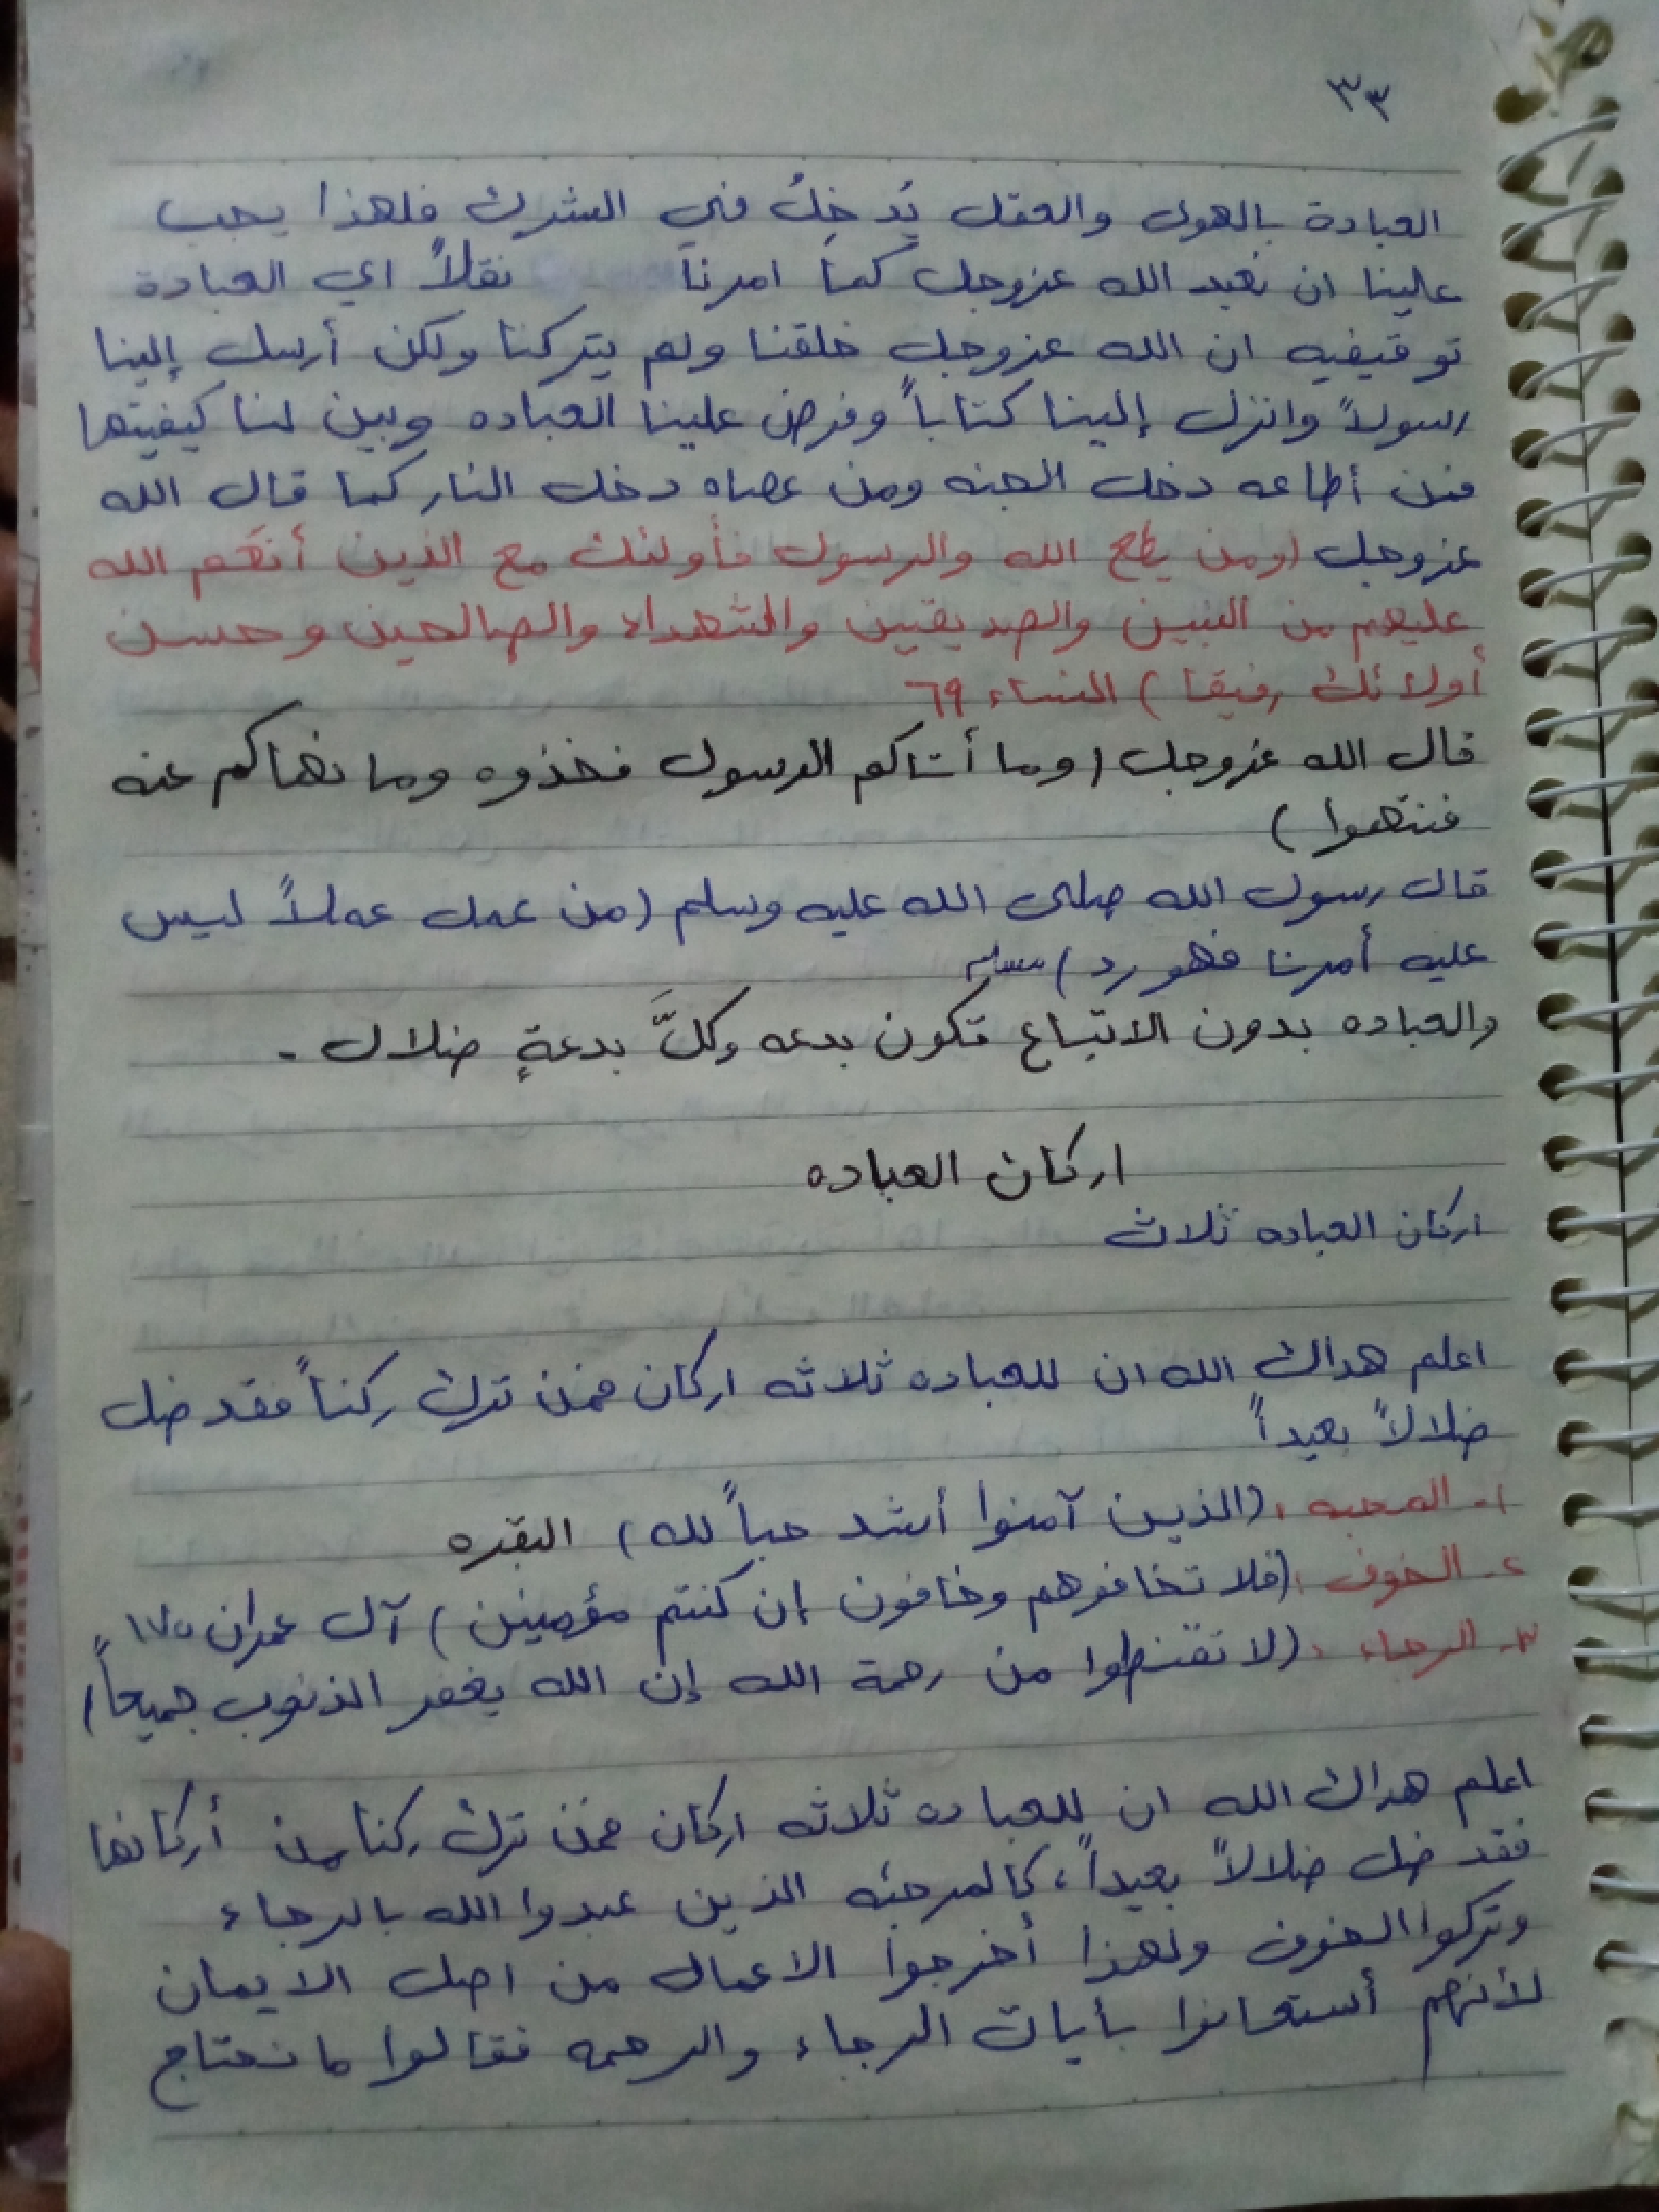 ٣٣
العبادة بالهوى والعقل يُدخِلُ في الشرك فلهذا يجب
علينا ان نعبد الله عزوجل كما امرنا نقلاً اي العبادة
توقيفيه ان الله عزوجل خلقنا ولم يتركنا ولكن أرسل إلينا
رسولاً وانزل إلينا كتاباً وفرض علينا العباده وبين لنا كيفيتها
فمن أطاعه دخل الجنه ومن عصاه دخل النار كما قال الله
عزوجل (ومن يطع الله والرسول فأولئك مع الذين أنعَم الله
عليهم من النبيين والصديقين والشهداء والصالحين وحسن
أولائك رفيقا) النساء ٦٩
قال الله عزوجل (وما أتاكم الرسول فخذوه وما نهاكم عنه
فنتهوا)
قال رسول الله صلى الله عليه وسلم (من عمل عملاً ليس
عليه أمرنا فهو رد) مسلم
والعباده بدون الاتباع تكون بدعه وكلَّ بدعةٍ ضلال .
اركان العباده
اركان العباده ثلاث
اعلم هداك الله ان للعباده ثلاثه اركان فمن ترك ركناً فقد ضل
ضلالاً بعيداً
١- المحبه : (الذين آمنوا أشد حباً لله) البقره
٢- الخوف : (فلا تخافوهم وخافون إن كنتم مؤمنين) آل عمران ١٧٥
٣- الرجاء : (لا تقنطوا من رحمة الله إن الله يغفر الذنوب جميعاً)
اعلم هداك الله ان للعباده ثلاثه اركان فمن ترك ركنا من أركانها
فقد ضل ضلالاً بعيداً، كالمرجئه الذين عبدوا الله بالرجاء
وتركوا الخوف ولهذا أخرجوا الاعمال من اصل الايمان
لأنهم أستعانوا بأيات الرجاء والرحمه فقالوا ما نحتاج